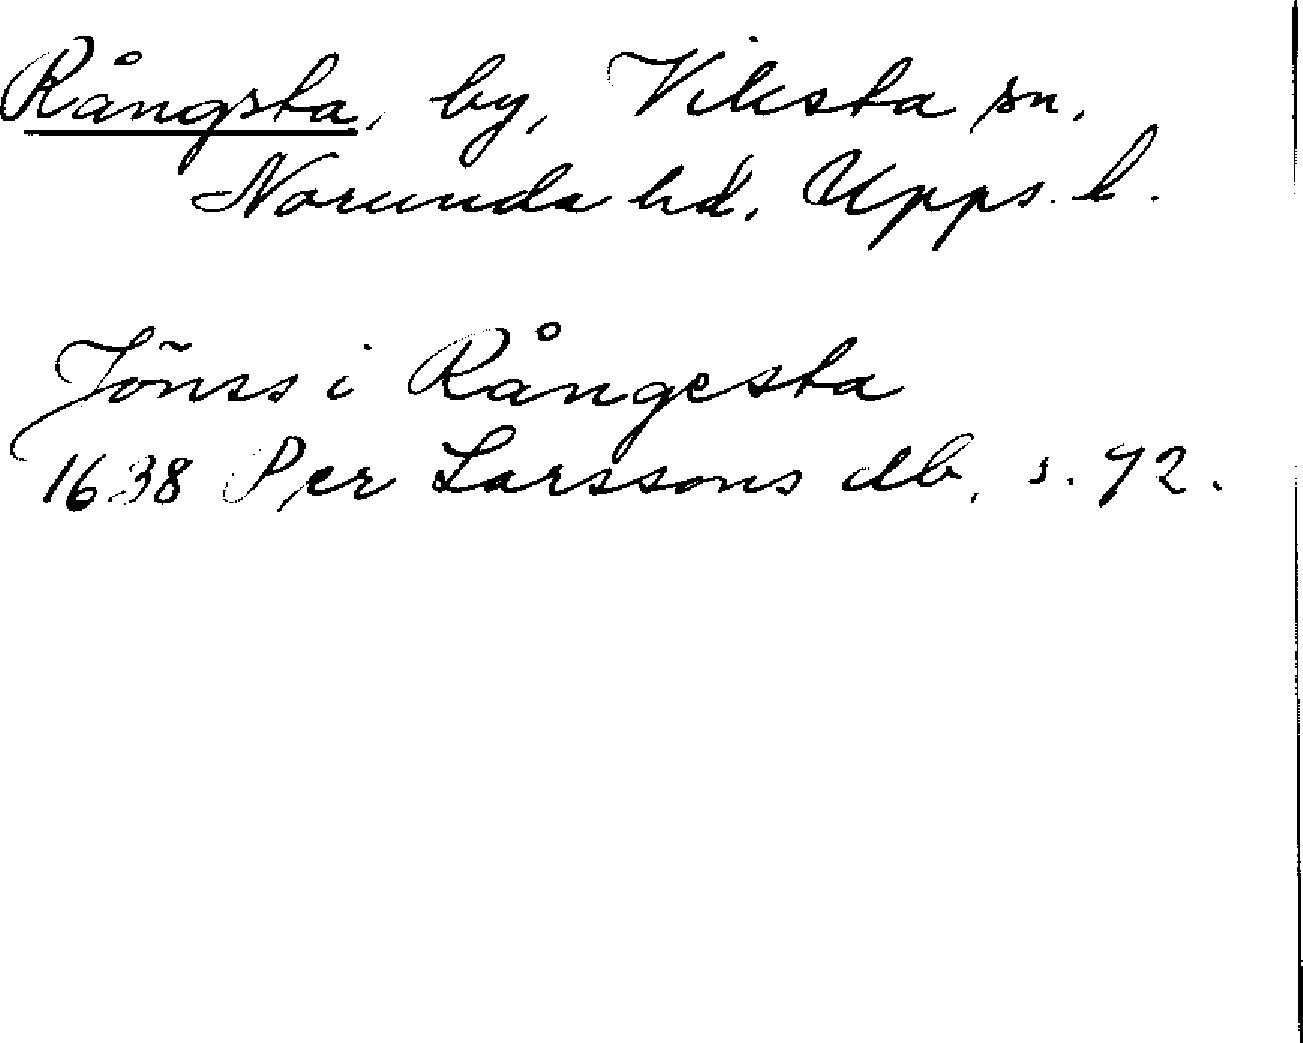 Rångsta, by, Viksta sn.
Norunda hd. Upps. l.
Jönss i Rångesta
1638 Per Larssons db. s. 72.